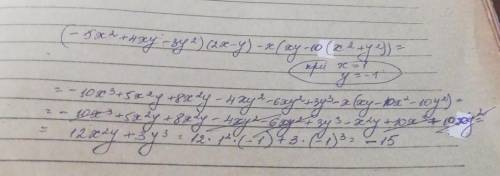 (-5x²+4xy-3y²)(2x-y)-x(xy-10(x²+y²))=
при x=1
y=-1
=-10x³+5x²y+8x²y-4xy²-6xy²+3y³-x(xy-10x²-10y²)=
=-10x³+5x²y+8x²y-4xy²-6xy²+3y³-x²y+10x³+10xy²=
= 12x²y+3y³=12·1²·(-1)+3·(-1)³=-15